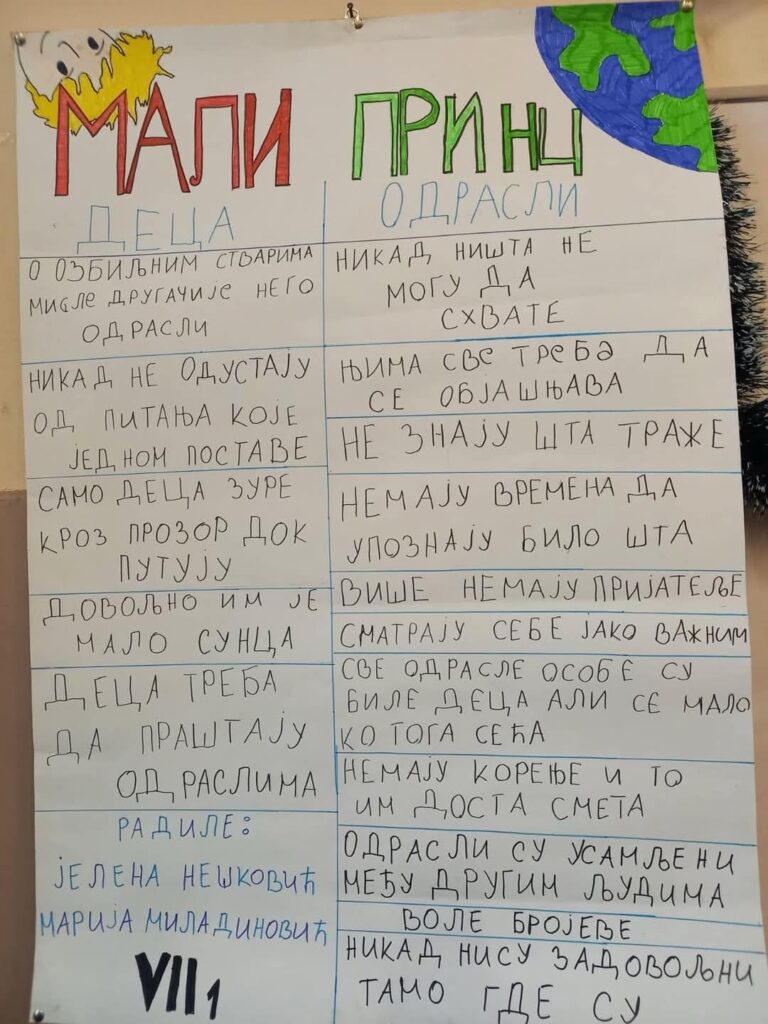 МАЛИ ПРИНЦ
ДЕЦА
О ОЗБИЉНИМ СТВАРИМА
МИСЛЕ ДРУГАЧИЈЕ НЕГО
ОДРАСЛИ
НИКАД НЕ ОДУСТАЈУ
ОД ПИТАЊА КОЈЕ
ЈЕДНОМ ПОСТАВЕ
САМО ДЕЦА ЗУРЕ
КРОЗ ПРОЗОР ДОК
ПУТУЈУ
ДОВОЉНО ИМ ЈЕ
МАЛО СУНЦА
ДЕЦА ТРЕБА
ДА ПРАШТАЈУ
ОДРАСЛИМА
РАДИЛЕ:
ЈЕЛЕНА НЕШКОВИЋ
МАРИЈА МИЛАДИНОВИЋ
VII1
ОДРАСЛИ
НИКАД НИШТА НЕ
МОГУ ДА
СХВАТЕ
ЊИМА СВЕ ТРЕБА ДА
СЕ ОБЈАШЊАВА
НЕ ЗНАЈУ ШТА ТРАЖЕ
НЕМАЈУ ВРЕМЕНА ДА
УПОЗНАЈУ БИЛО ШТА
ВИШЕ НЕМАЈУ ПРИЈАТЕЉЕ
СМАТРАЈУ СЕБЕ ЈАКО ВАЖНИМ
СВЕ ОДРАСЛЕ ОСОБЕ СУ
БИЛЕ ДЕЦА АЛИ СЕ МАЛО
КО ТОГА СЕЋА
НЕМАЈУ КОРЕЊЕ И ТО
ИМ ДОСТА СМЕТА
ОДРАСЛИ СУ УСАМЉЕНИ
МЕЂУ ДРУГИМ ЉУДИМА
ВОЛЕ БРОЈЕВЕ
НИКАД НИСУ ЗАДОВОЉНИ
ТАМО ГДЕ СУ